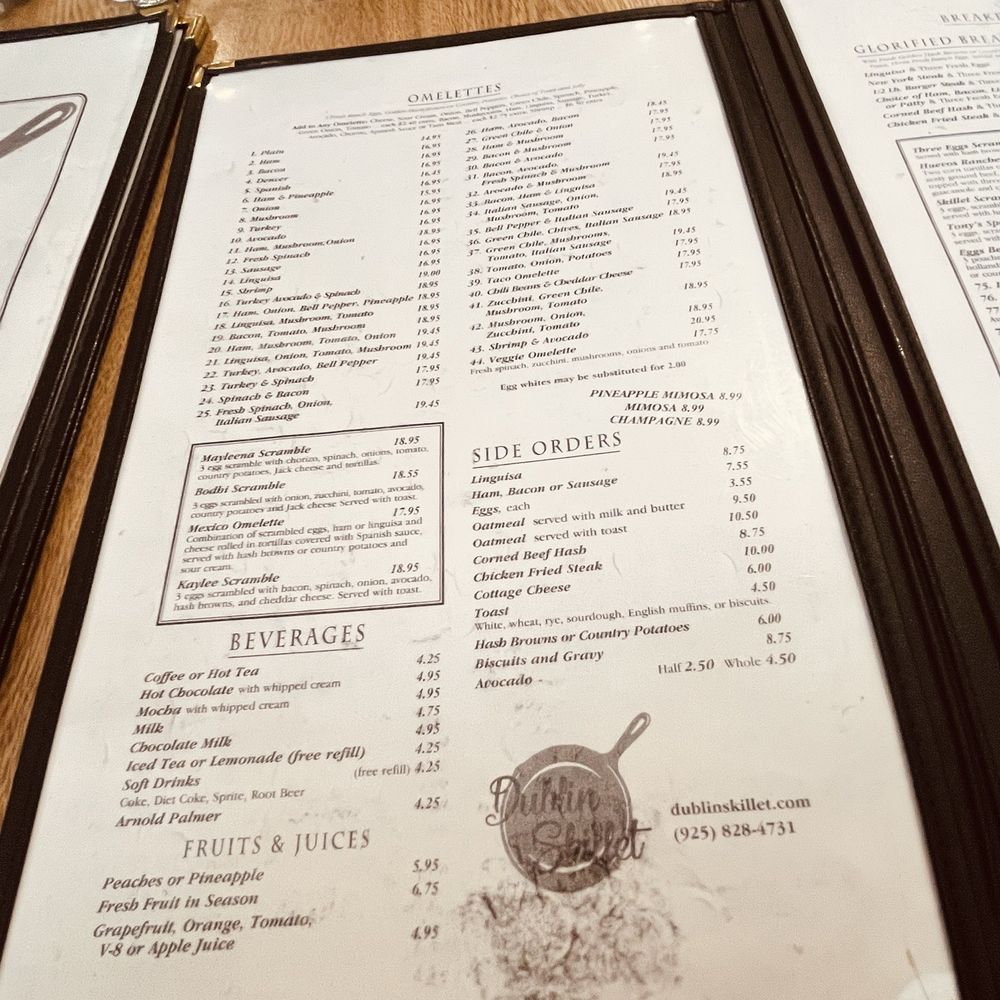 OMELETTES
Add to Any Omelette: Cheese, Sour Cream, Onion, Bell Peppers, Green Chile, Spinach, Pineapple,
1. Plain
2. Ham
3. Bacon
4. Denver
5. Spanish
6. Ham & Pineapple
7. Onion
8. Mushroom
9. Turkey
10. Avocado
11. Ham, Mushroom, Onion
12. Fresh Spinach
13. Sausage
14. Linguisa
15. Shrimp
16. Turkey Avocado & Spinach
17. Ham, Onion, Bell Pepper, Pineapple
18. Linguisa, Mushroom, Tomato
19. Bacon, Tomato, Mushroom
20. Ham, Mushroom, Tomato, Onion
21. Linguisa, Onion, Tomato, Mushroom
22. Turkey, Avocado, Bell Pepper
23. Turkey & Spinach
24. Spinach & Bacon
25. Fresh Spinach, Onion,
Italian Sausage
14.95
16.95
16.95
16.45
16.95
15.95
16.95
16.95
18.95
16.95
16.95
16.95
19.00
18.95
18.95
18.95
19.45
19.45
19.45
17.95
17.95
19.45
26. Ham, Avocado, Bacon
27. Green Chile & Onion
28. Ham & Mushroom
29. Bacon & Mushroom
30. Bacon & Avocado
31. Bacon, Avocado,
Fresh Spinach & Mushroom
32. Avocado & Mushroom
33. Bacon, Ham & Linguisa
34. Italian Sausage, Onion,
Mushroom, Tomato
35. Bell Pepper & Italian Sausage
36. Green Chile, Chives, Italian Sausage
37. Green Chile, Mushrooms,
Tomato, Italian Sausage
38. Tomato, Onion, Potatoes
39. Taco Omelette
40. Chili Beans & Cheddar Cheese
41. Zucchini, Green Chile,
Mushroom, Tomato
42. Mushroom, Onion,
Zucchini, Tomato
43. Shrimp & Avocado
44. Veggie Omelette
Fresh spinach, zucchini, mushrooms, onions and tomato
18.45
17.95
17.95
17.95
19.45
17.95
18.95
19.45
17.95
18.95
19.45
17.95
17.95
18.95
18.95
20.95
17.75
Egg whites may be substituted for 2.00
PINEAPPLE MIMOSA 8.99
MIMOSA 8.99
CHAMPAGNE 8.99
Mayleena Scramble 18.95
3 egg scramble with chorizo, spinach, onions, tomato,
country potatoes, Jack cheese and tortillas.
Bodhi Scramble 18.55
3 eggs scrambled with onion, zucchini, tomato, avocado,
country potatoes and Jack cheese Served with toast.
Mexico Omelette 17.95
Combination of scrambled eggs, ham or linguisa and
cheese rolled in tortillas covered with Spanish sauce,
served with hash browns or country potatoes and
sour cream.
Kaylee Scramble 18.95
3 eggs scrambled with bacon, spinach, onion, avocado,
hash browns, and cheddar cheese. Served with toast.
BEVERAGES
Coffee or Hot Tea 4.25
Hot Chocolate with whipped cream 4.95
Mocha with whipped cream 4.95
Milk 4.75
Chocolate Milk 4.95
Iced Tea or Lemonade (free refill) 4.25
Soft Drinks (free refill) 4.25
Coke, Diet Coke, Sprite, Root Beer
Arnold Palmer 4.25
FRUITS & JUICES
Peaches or Pineapple 5.95
Fresh Fruit in Season 6.75
Grapefruit, Orange, Tomato,
V-8 or Apple Juice 4.95
SIDE ORDERS
Linguisa 8.75
Ham, Bacon or Sausage 7.55
Eggs, each 3.55
Oatmeal served with milk and butter 9.50
Oatmeal served with toast 10.50
Corned Beef Hash 8.75
Chicken Fried Steak 10.00
Cottage Cheese 6.00
Toast 4.50
White, wheat, rye, sourdough, English muffins, or biscuits.
Hash Browns or Country Potatoes 6.00
Biscuits and Gravy 8.75
Avocado Half 2.50 Whole 4.50
Dublin
Skillet
dublinskillet.com
(925) 828-4731
GLORIFIED
Linguisa & Three Fresh Eggs
New York Steak & Three
1/2 Lb. Burger Steak & Three
Choice of Ham, Bacon,
or Patty & Three Fresh
Corned Beef Hash &
Chicken Fried Steak
Three Eggs
Huevos
Two corn tortillas
Skillet
Tony's
Eggs
75.
76.
77.